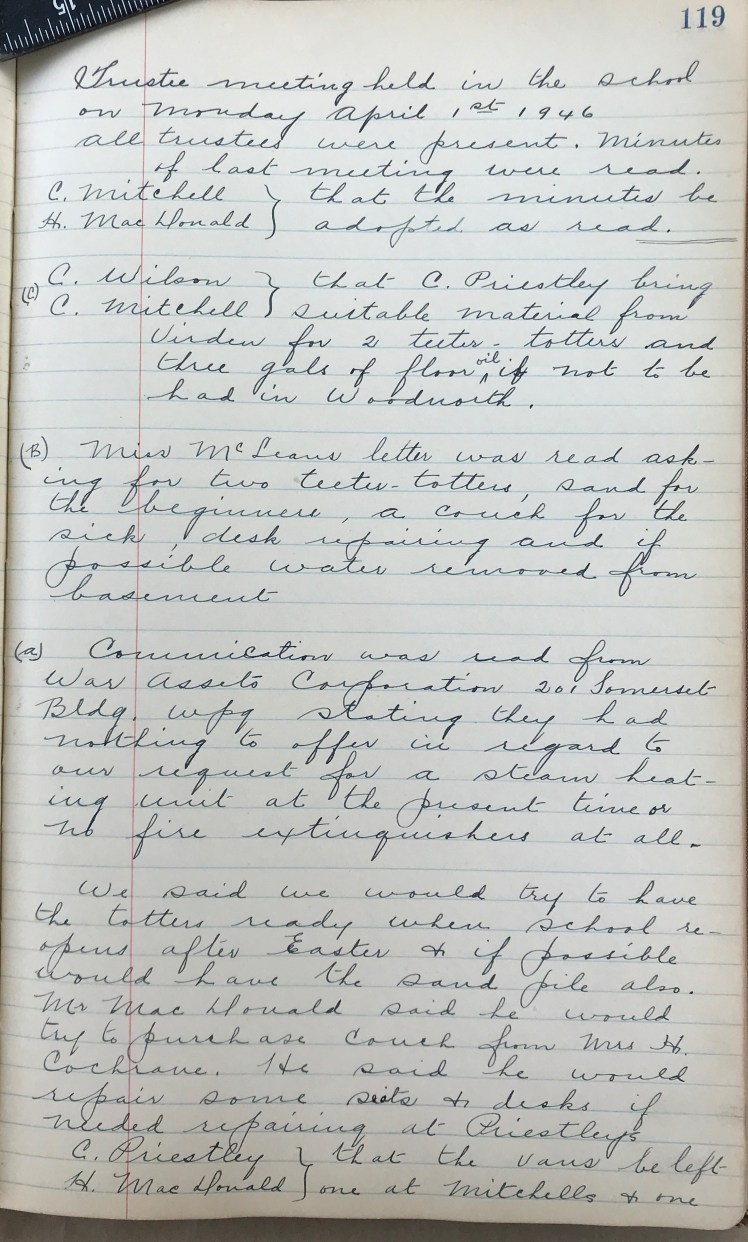 15
119
Trustee meeting held in the school
on Monday April 1st 1946
all trustees were present. Minutes
of last meeting were read.
C. Mitchell } that the minutes be
H. MacDonald } adopted as read.
(C) C. Wilson } that C. Priestley bring
C. Mitchell } suitable material from
Virden for 2 teeter-totters and
three gals of floor oil if not to be
had in Woodnorth.
(B) Miss McLeans letter was read ask-
ing for two teeter-totters, sand for
the beginners, a couch for the
sick, desk repairing and if
possible water removed from
basement
(a) Communication was read from
War Assets Corporation 201 Somerset
Bldg. Wpg stating they had
nothing to offer in regard to
our request for a steam heat-
ing unit at the present time or
no fire extinguishers at all.
We said we would try to have
the totters ready when school re-
opens after Easter & if possible
would have the sand pile also.
Mr MacDonald said he would
try to purchase couch from Mrs H.
Cochrane. He said he would
repair some seats & desks if
needed repairing at Priestleys
C. Priestley } that the vans be left
H. MacDonald } one at Mitchells & one